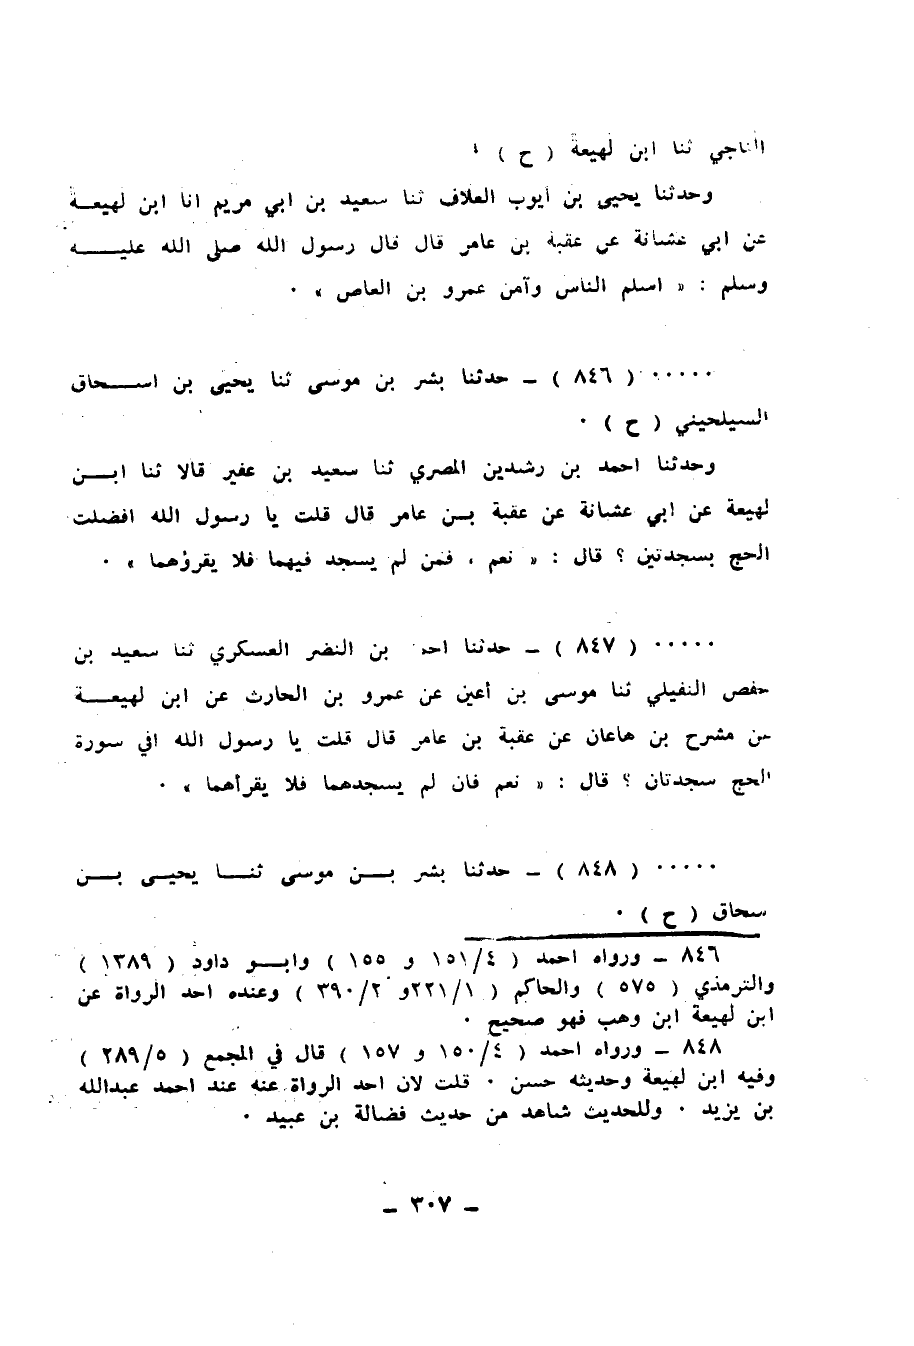 الناجي ثنا ابن لهيعة ( ح ) ٠
وحدثنا يحيى بن أيوب العلاف ثنا سعيد بن ابي مريم انا ابن لهيعــة
عن ابي عشانة عن عقبة بن عامر قال قال رسول الله صلى الله عليــــه
وسلم : « اسلم الناس وآمن عمرو بن العاص » ٠
٠٠٠٠٠ ( ٨٤٦ ) ــ حدثنا بشر بن موسى ثنا يحيى بن اســـحاق
السيلحيني ( ح ) ٠
وحدثنا احمد بن رشدين المصري ثنا سعيد بن عفير قالا ثنا ابــن
لهيعة عن ابي عشانة عن عقبة بــن عامر قال قلت يا رسول الله افضلت
الحج بسجدتين ؟ قال : « نعم ، فمن لم يسجد فيهما فلا يقرؤهما » ٠
٠٠٠٠٠ ( ٨٤٧ ) ــ حدثنا احمد بن النضر العسكري ثنا سعيد بن
حفص النفيلي ثنا موسى بن أعين عن عمرو بن الحارث عن ابن لهيعــة
عن مشرح بن هاعان عن عقبة بن عامر قال قلت يا رسول الله افي سورة
الحج سجدتان ؟ قال : « نعم فان لم يسجدهما فلا يقرأهما » ٠
٠٠٠٠٠ ( ٨٤٨ ) ــ حدثنا بشر بــن موسى ثنــا يحيــى بــن
سحاق ( ح ) ٠
٨٤٦ ــ ورواه احمد ( ١٥١/٤ و ١٥٥ ) وابــو داود ( ١٣٨٩ )
والترمذي ( ٥٧٥ ) والحاكم ( ٢٢١/١و ٣٩٠/٢ ) وعنده احد الرواة عن
ابن لهيعة ابن وهب فهو صحيح ٠
٨٤٨ ــ ورواه احمد ( ١٥٠/٤ و ١٥٧ ) قال في المجمع ( ٢٨٩/٥ )
وفيه ابن لهيعة وحديثه حسن ٠ قلت لان احد الرواة عنه عند احمد عبدالله
بن يزيد ٠ وللحديث شاهد من حديث فضالة بن عبيد ٠
ــ ٣٠٧ ــ